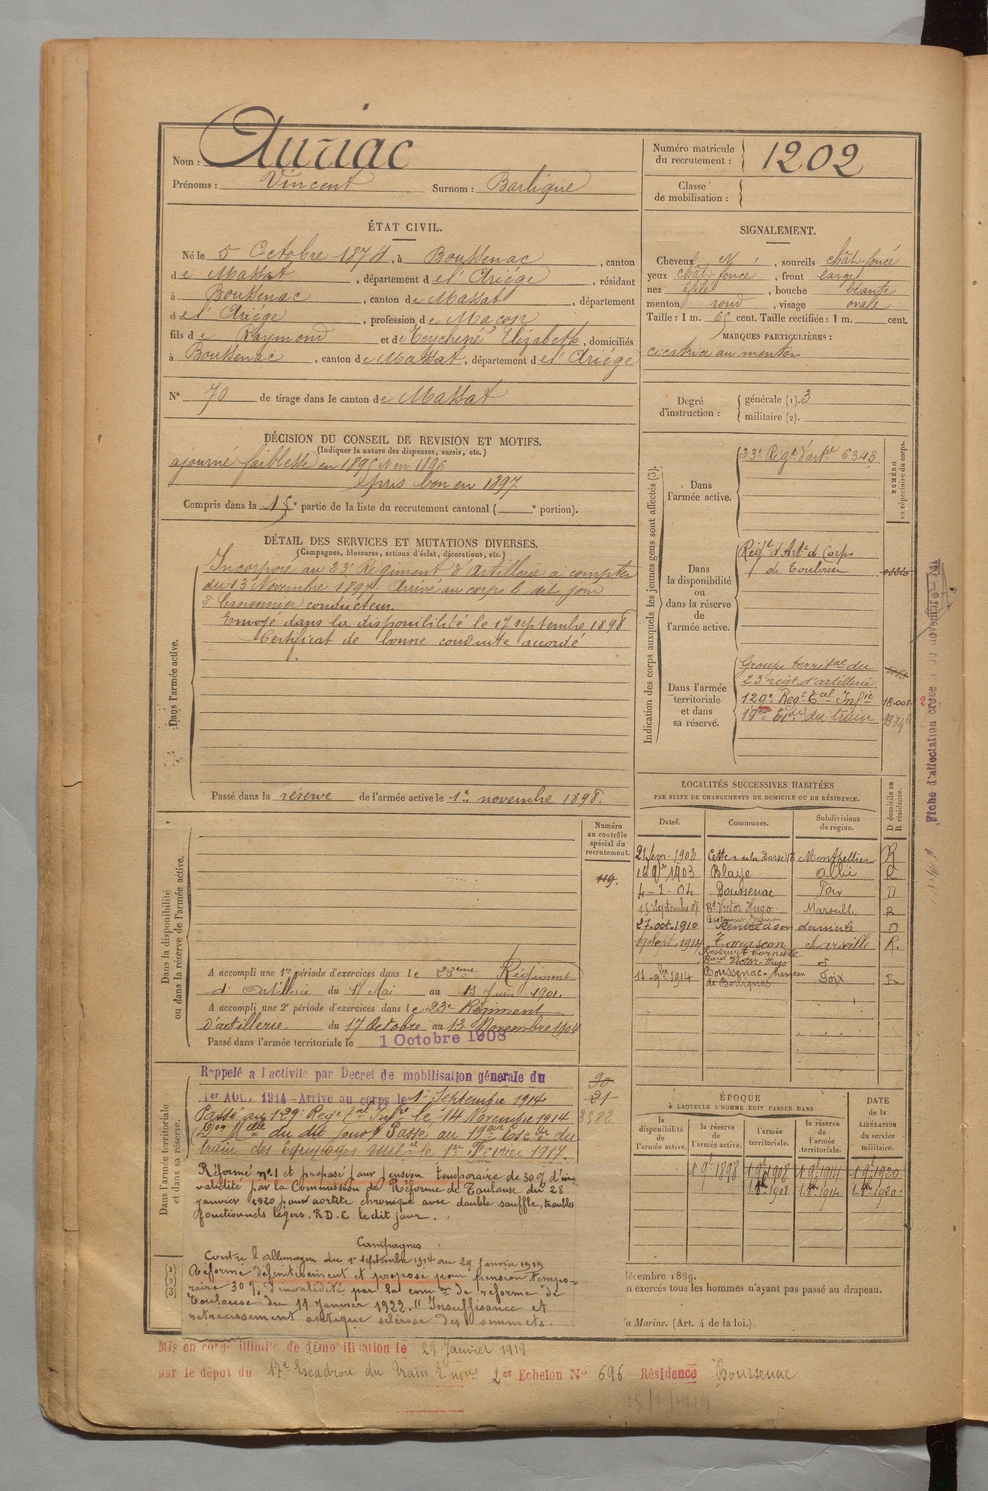 Nom : Auriac
Prénoms : Vincent Surnom : Barlique
Numéro matricule du recrutement : 1202
Classe de mobilisation :
ÉTAT CIVIL.
Né le 5 Octobre 1874, à Boussenac, canton
de Massat, département de l'Ariége, résidant
à Boussenac, canton de Massat, département
de l'Ariége, profession de Maçon
fils de Raymond et de Elizabeth, domiciliés
à Boussenac, canton de Massat, département de l'Ariége
N° 70 de tirage dans le canton de Massat
SIGNALEMENT.
Cheveux N , sourcils chât-foncé
yeux chât-foncé, front large
nez effilé, bouche béante
menton rond, visage ovale
Taille : 1 m. 65 cent. Taille rectifiée : 1 m. cent.
MARQUES PARTICULIÈRES :
cicatrice au menton
Degré d'instruction : générale (1). 3
militaire (2).
DÉCISION DU CONSEIL DE REVISION ET MOTIFS.
(Indiquer la nature des dispenses, sursis, etc.)
ajourné faiblesse en 1895 et en 1896
pris bon en 1897
Compris dans la 1e partie de la liste du recrutement cantonal ( e portion).
DÉTAIL DES SERVICES ET MUTATIONS DIVERSES.
(Campagnes, blessures, actions d'éclat, décorations, etc.)
Dans l'armée active.
Incorporé au 23e Régiment d'Artillerie a compter
du 13 Novembre 1897. Arrivé au corps le dit jour
2e Canonnier conducteur.
Envoyé dans la disponibilité le 17 septembre 1898
Certificat de bonne conduite accordé
Passé dans la réserve de l'armée active le 1er novembre 1898.
Indication des corps auxquels les jeunes gens sont affectés (3).
NUMÉRO au répertoire du corps.
Dans l'armée active.
23e Régt d'artie 6343
Dans la disponibilité ou dans la réserve de l'armée active.
Régt d'Artie de Corps
de Toulouse
Dans l'armée territoriale et dans sa réserve.
Groupe territal du
23e régt d'artillerie
129e Régt Tal Infie 18.001
19me Escdre du train
Fiche d'affectation
LOCALITÉS SUCCESSIVES HABITÉES
PAR SUITE DE CHANGEMENTS DE DOMICILE OU DE RÉSIDENCE.
Dates. Communes. Subdivisions de région. D domicile ou R résidence.
21 févr. 1903 Cette Montpellier R
16 9bre 1903 Blaye Albi R
4-2-04 Boussenac Foix D
15 Septembre 07 Bd Victor Hugo Marseille R
27 oct. 1910 Rentré à son domicile D
19 Sept. 1914 Tarascon Marseille R.
14-9bre 1914 Boussenac-hameau de Barlignes Foix R
Numéro au contrôle spécial du recrutement.
119.
Dans la disponibilité ou dans la réserve de l'armée active.
A accompli une 1re période d'exercices dans le 23eme Régiment
d'Artillerie du 17 Mai au 13 Juin 1901
A accompli une 2e période d'exercices dans le 23e Régiment
d'artillerie du 17 Octobre au 13 Novembre 1904
Passé dans l'armée territoriale le 1 Octobre 1908
Dans l'armée territoriale et dans sa réserve.
Rappelé a l'activite par Decret de mobilisation générale du
1er AOUT 1914 - Arrive au corps le 1er Septembre 1914
Passé au 129e Régt Tal Infie le 14 Novembre 1914
Don Mlle du dit jour. Passé au 19eme Escdre du
train des Equipages Milre le 1er Février 1917.
90
21
3582
Réformé n°.1 et proposé pour pension temporaire de 30% d'in-
validité par la Commission de Réforme de Toulouse du 28
janvier 1920 pour aortite chronique avec double souffle, troubles
fonctionnels légers. R.D.C. le dit jour.
Campagnes
Contre l'allemagne du 1er septembre 1914 au 29 janvier 1919
Réformé définitivement et proposé pour pension tempo-
raire 30% d'invalidité par la comon de réforme de
Toulouse du 11 Janvier 1922. "Insuffisance et
rétrécissement aortique sclérose des sommets.
ÉPOQUE
À LAQUELLE L'HOMME DOIT PASSER DANS
la disponibilité de l'armée active. la réserve de l'armée active. l'armée territoriale. la réserve de l'armée territoriale.
DATE de la LIBÉRATION du service militaire.
1 9bre 1898 1 9bre 1908 1 9bre 1914 1 9bre 1920
1 8bre 1908 1 8bre 1914 1 8bre 1920.
décembre 1889.
n exercés tous les hommes n'ayant pas passé au drapeau.
a Marine. (Art. 4 de la loi.)
Mis en congé illimité de démobilisation le 29 Janvier 1919
par le dépot du 17e Escadron du Train 2er Echelon N° 696 Résidence Boussenac